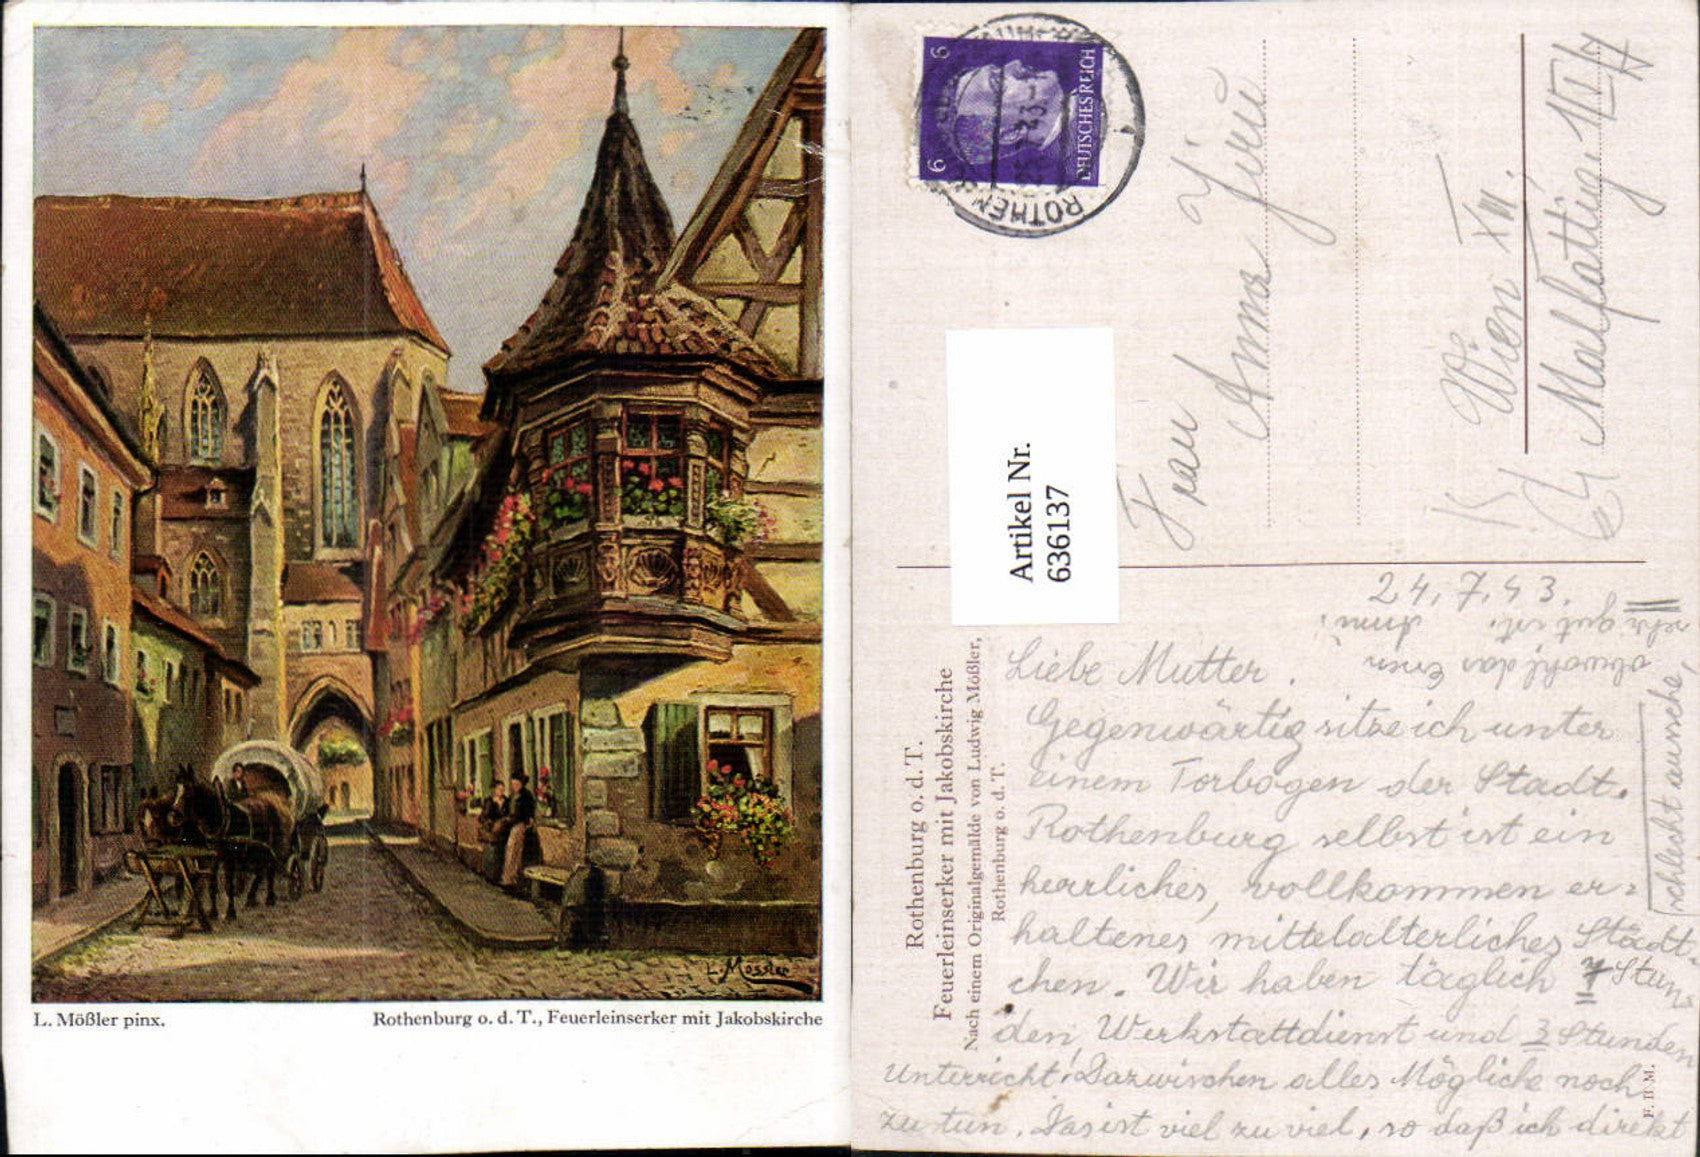 L. Mössler
L. Mößler pinx.
Rothenburg o. d. T., Feuerleinserker mit Jakobskirche
6
6
DEUTSCHES REICH
ROTHEN
Artikel Nr.
636137
Frau
Anna
Wien XII.
Malfattig.
Rothenburg o. d. T.
Feuerleinserker mit Jakobskirche
Nach einem Originalgemälde von Ludwig Mößler,
Rothenburg o. d. T.
24.7.43.
Liebe Mutter.
Gegenwärtig sitze ich unter
einem Torbogen der Stadt.
Rothenburg selbst ist ein
herrliches, vollkommen er=
haltenes mittelalterliches Städt-
chen. Wir haben täglich 7 Stun=
den Werkstattdienst und 3 Stunden
Unterricht! Dazwischen alles Mögliche noch
zu tun. Das ist viel zu viel, so daß ich direkt
schlecht aussehe,
obwohl das Essen
sehr gut ist.